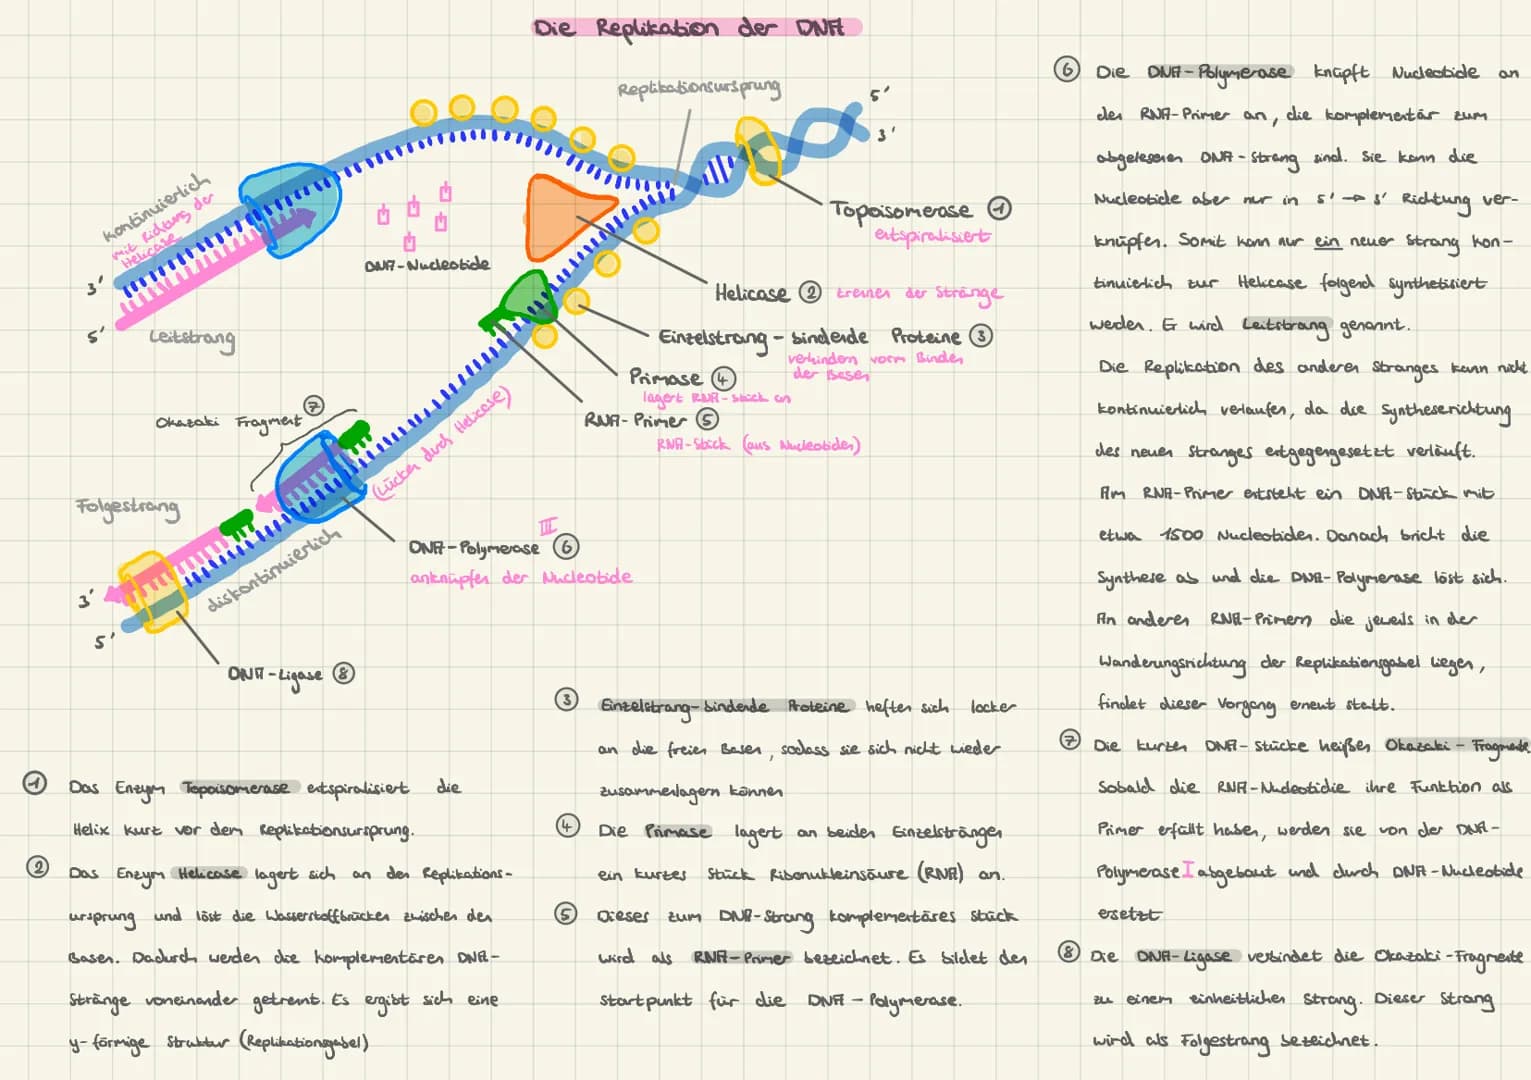 Die Replikation der DNA
Replikationsursprung
5'
3'
kontinuierlich
mit Richtung der
Helicase
3'
5'
Leitstrang
DNA-Nucleotide
Topoisomerase ①
entspiralisiert
Helicase ② trennen der Stränge
Einzelstrang-bindende Proteine ③
verhindern vorm Binden
der Basen
Primase ④
lagert RNA-Stück an
RNA-Primer ⑤
RNA-Stück (aus Nucleotiden)
Okazaki Fragment ⑦
(Lücken durch Helicase)
Folgestrang
diskontinuierlich
III
DNA-Polymerase ⑥
anknüpfen der Nucleotide
3'
5'
DNA-Ligase ⑧
① Das Enzym Topoisomerase entspiralisiert die
Helix kurz vor dem Replikationsursprung.
② Das Enzym Helicase lagert sich an den Replikations-
ursprung und löst die Wasserstoffbrücken zwischen den
Basen. Dadurch werden die komplementären DNA-
Stränge voneinander getrennt. Es ergibt sich eine
y-förmige Struktur (Replikationsgabel)
③ Einzelstrang-bindende Proteine heften sich locker
an die freien Basen, sodass sie sich nicht wieder
zusammenlagern können
④ Die Primase lagert an beiden Einzelsträngen
ein kurzes Stück Ribonukleinsäure (RNA) an.
⑤ Dieses zum DNA-Strang komplementäres Stück
wird als RNA-Primer bezeichnet. Es bildet den
Startpunkt für die DNA-Polymerase.
⑥ Die DNA-Polymerase knüpft Nucleotide an
den RNA-Primer an, die komplementär zum
abgelesenen DNA-Strang sind. Sie kann die
Nucleotide aber nur in 5' → 3' Richtung ver-
knüpfen. Somit kann nur ein neuer Strang kon-
tinuierlich zur Helicase folgend synthetisiert
werden. Er wird Leitstrang genannt.
Die Replikation des anderen Stranges kann nicht
kontinuierlich verlaufen, da die Syntheserichtung
des neuen Stranges entgegengesetzt verläuft.
Am RNA-Primer entsteht ein DNA-Stück mit
etwa 1500 Nucleotiden. Danach bricht die
Synthese ab und die DNA-Polymerase löst sich.
An anderen RNA-Primern die jeweils in der
Wanderungsrichtung der Replikationsgabel liegen,
findet dieser Vorgang erneut statt.
⑦ Die kurzen DNA-Stücke heißen Okazaki-Fragmente
Sobald die RNA-Nucleotidie ihre Funktion als
Primer erfüllt haben, werden sie von der DNA-
Polymerase I abgebaut und durch DNA-Nucleotide
ersetzt
⑧ Die DNA-Ligase verbindet die Okazaki-Fragmente
zu einem einheitlichen Strang. Dieser Strang
wird als Folgestrang bezeichnet.